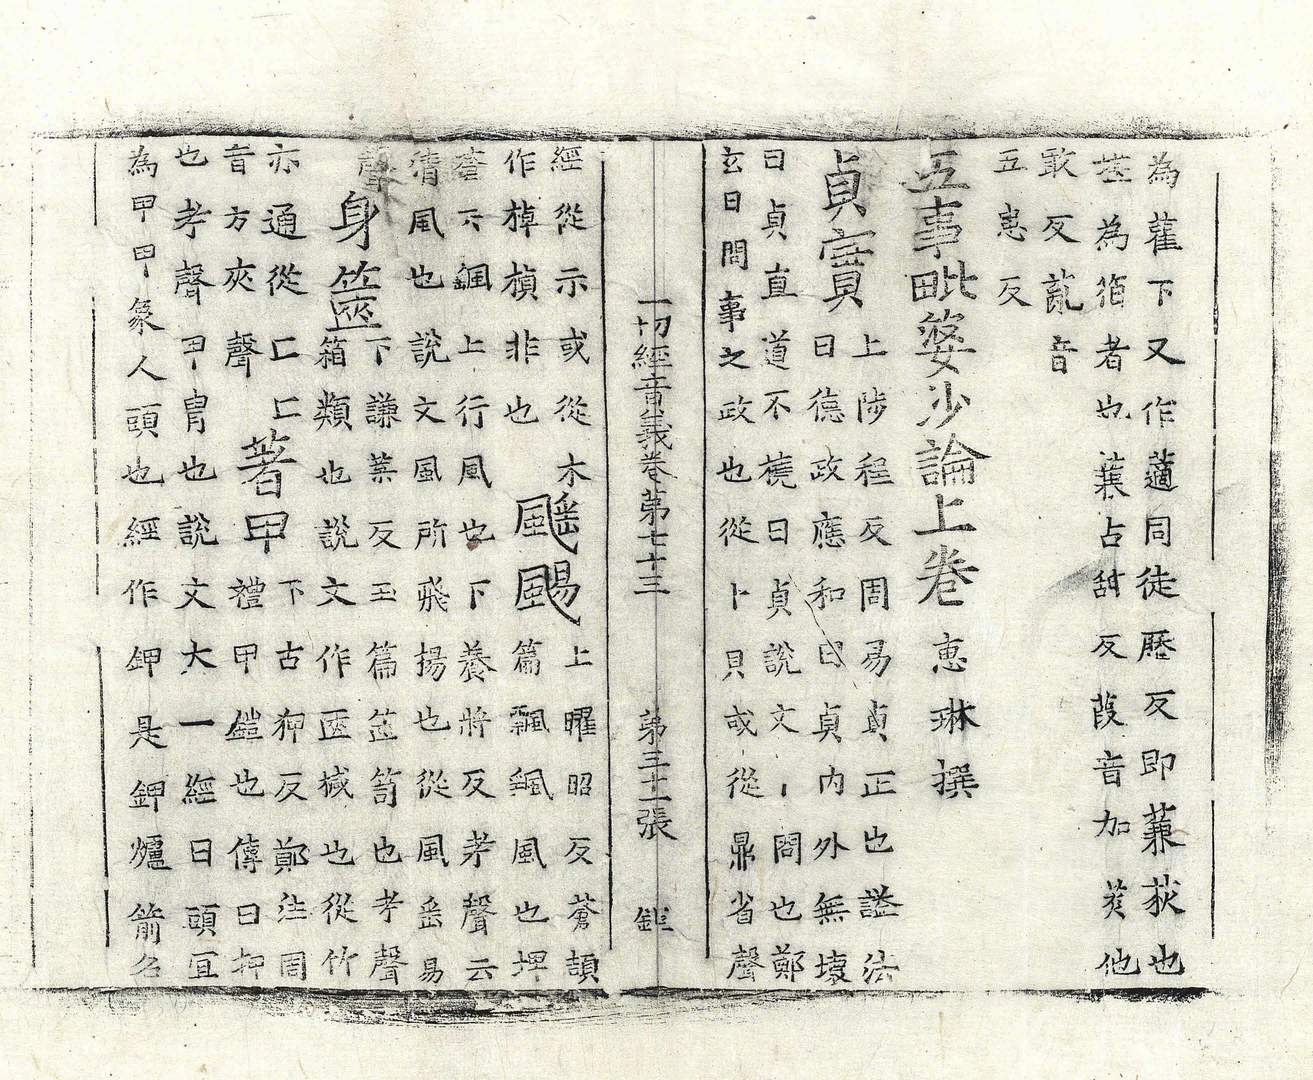 為藋下又作藡同徒歷反即蒹荻也
葚為䓊者也蒹占甜反葭音加菼他
敢反薍音
五患反
五事毗婆沙論上卷 惠琳撰
貞實 上陟程反周易貞正也諡法
曰德政應和曰貞內外無壞
曰貞直道不橈曰貞說文問也鄭
玄曰問事之政也從卜貝或從鼎省聲
一切經音義卷第七十三 第三十一張
經從示或從木 上曜昭反蒼頡
作棹楨非也 颻颺 篇飄颻風也埤
蒼云颻上行風也下養將反考聲云
清風也說文風所飛揚也從風䍃易
聲 身篋 下謙葉反玉篇篋笥也考聲
箱類也說文作匧椷也從竹
亦通從匚匚 著甲 下古狎反鄭注周
音方夾聲 禮甲鎧也傳曰押
也考聲甲冑也說文大一經曰頭宜
為甲甲象人頭也經作鉀是鉀爐箭名